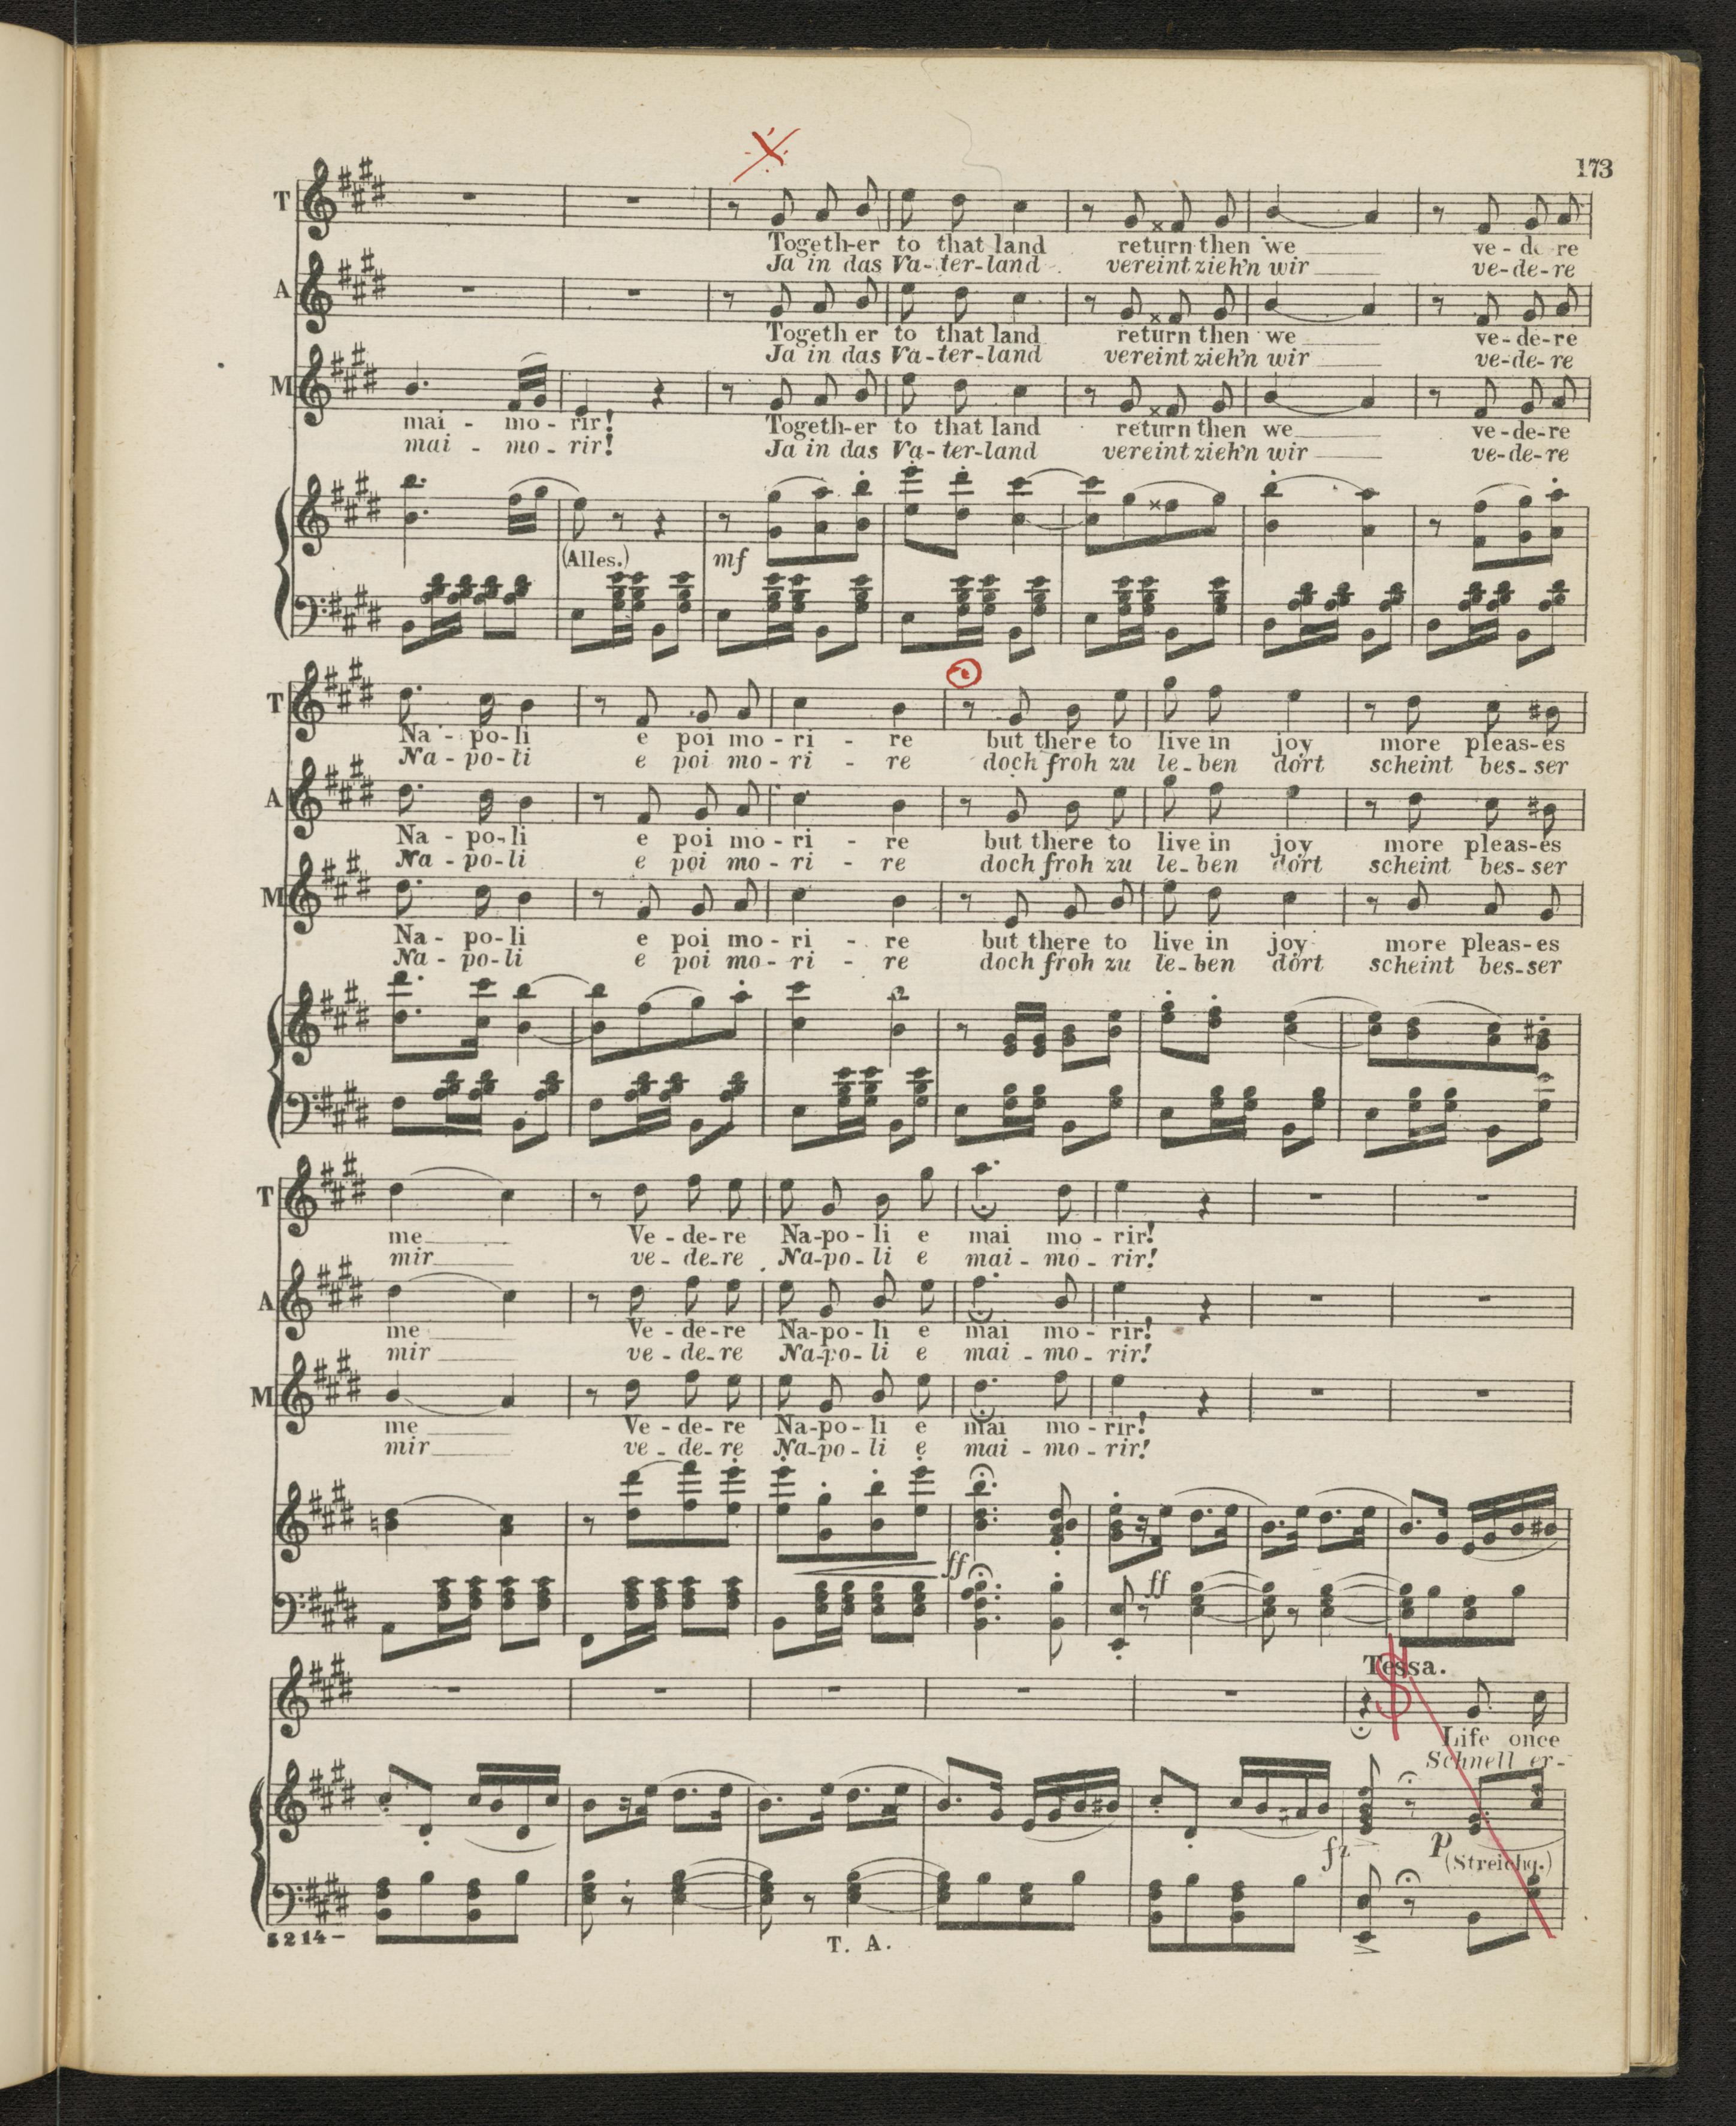 173
T
Togeth-er to that land return then we ve-de-re
Ja in das Va-ter-land vereint zieh'n wir ve-de-re
A
Togeth er to that land return then we ve-de-re
Ja in das Va-ter-land vereint zieh'n wir ve-de-re
M
mai - mo - rir! Togeth-er to that land return then we ve-de-re
mai - mo - rir! Ja in das Va-ter-land vereint zieh'n wir ve-de-re
(Alles.) mf
T
Na - po-li e poi mo - ri - re but there to live in joy more pleas-es
Na - po-li e poi mo - ri - re doch froh zu le-ben dort scheint bes-ser
A
Na - po-li e poi mo - ri - re but there to live in joy more pleas-es
Na - po-li e poi mo - ri - re doch froh zu le-ben dort scheint bes-ser
M
Na - po-li e poi mo - ri - re but there to live in joy more pleas-es
Na - po-li e poi mo - ri - re doch froh zu le-ben dort scheint bes-ser
T
me Ve - de-re Na-po-li e mai mo - rir!
mir ve - de-re Na-po-li e mai - mo - rir!
A
me Ve - de-re Na-po-li e mai mo - rir!
mir ve - de-re Na-po-li e mai - mo - rir!
M
me Ve - de-re Na-po-li e mai mo - rir!
mir ve - de-re Na-po-li e mai - mo - rir!
ff
ff
Tessa.
Life once
Schnell er-
fz p
(Streichq.)
5214- T. A.